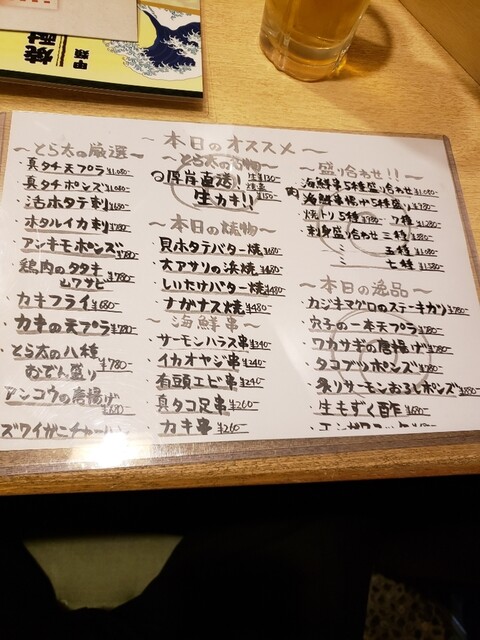 焼酎
甲類
～本日のオススメ～
～とら太の厳選～
・真タチ天プラ ¥1,080-
・真タチポンズ ¥1,080-
・活ホタテ刺 ¥680-
・ホタルイカ刺 ¥780-
・アンキモポンズ ¥780-
・鶏肉のタタキ
山ワサビ ¥780-
・カキフライ ¥680-
・カキの天プラ ¥780-
・とら太の八種
おでん盛り ¥780
アンコウの唐揚げ
¥680-
ズワイガニチャーハン
～とら太の名物～
厚岸直送!
生カキ!!
～本日の焼物～
・貝ホタテバター焼 ¥680-
・大アサリの浜焼 ¥480-
・しいたけバター焼 ¥480-
・ナガナス焼 ¥480-
～海鮮串～
・サーモンハラス串 ¥240-
・イカオヤジ串 ¥240-
・有頭エビ串 ¥240-
・真タコ足串 ¥260-
・カキ串 ¥260-
～盛り合わせ!!～
海鮮串5種盛り合わせ
肉 5種盛り合わせ
焼トリ5種 7種
・刺身盛り合わせ 三種
五種
七種
～本日の逸品～
・カジキマグロのステーキカツ ¥780-
・穴子の一本天プラ ¥780-
・ワカサギの唐揚げ ¥580-
・タコブリポンズ ¥580-
・炙りサーモンおろしポンズ ¥880-
・生もずく酢 ¥480-